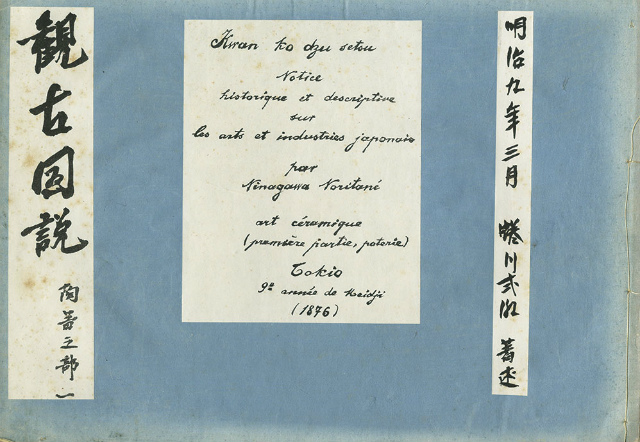 観古図説
陶器之部 一
Kwan ko dzu setou
Notice
historique et descriptive
sur
les arts et industries japonais
par
Ninagawa Noritané
art céramique
(première partie, poterie)
Tokio
9e année de Meidji
(1876)
明治九年三月 蜷川式胤 著述